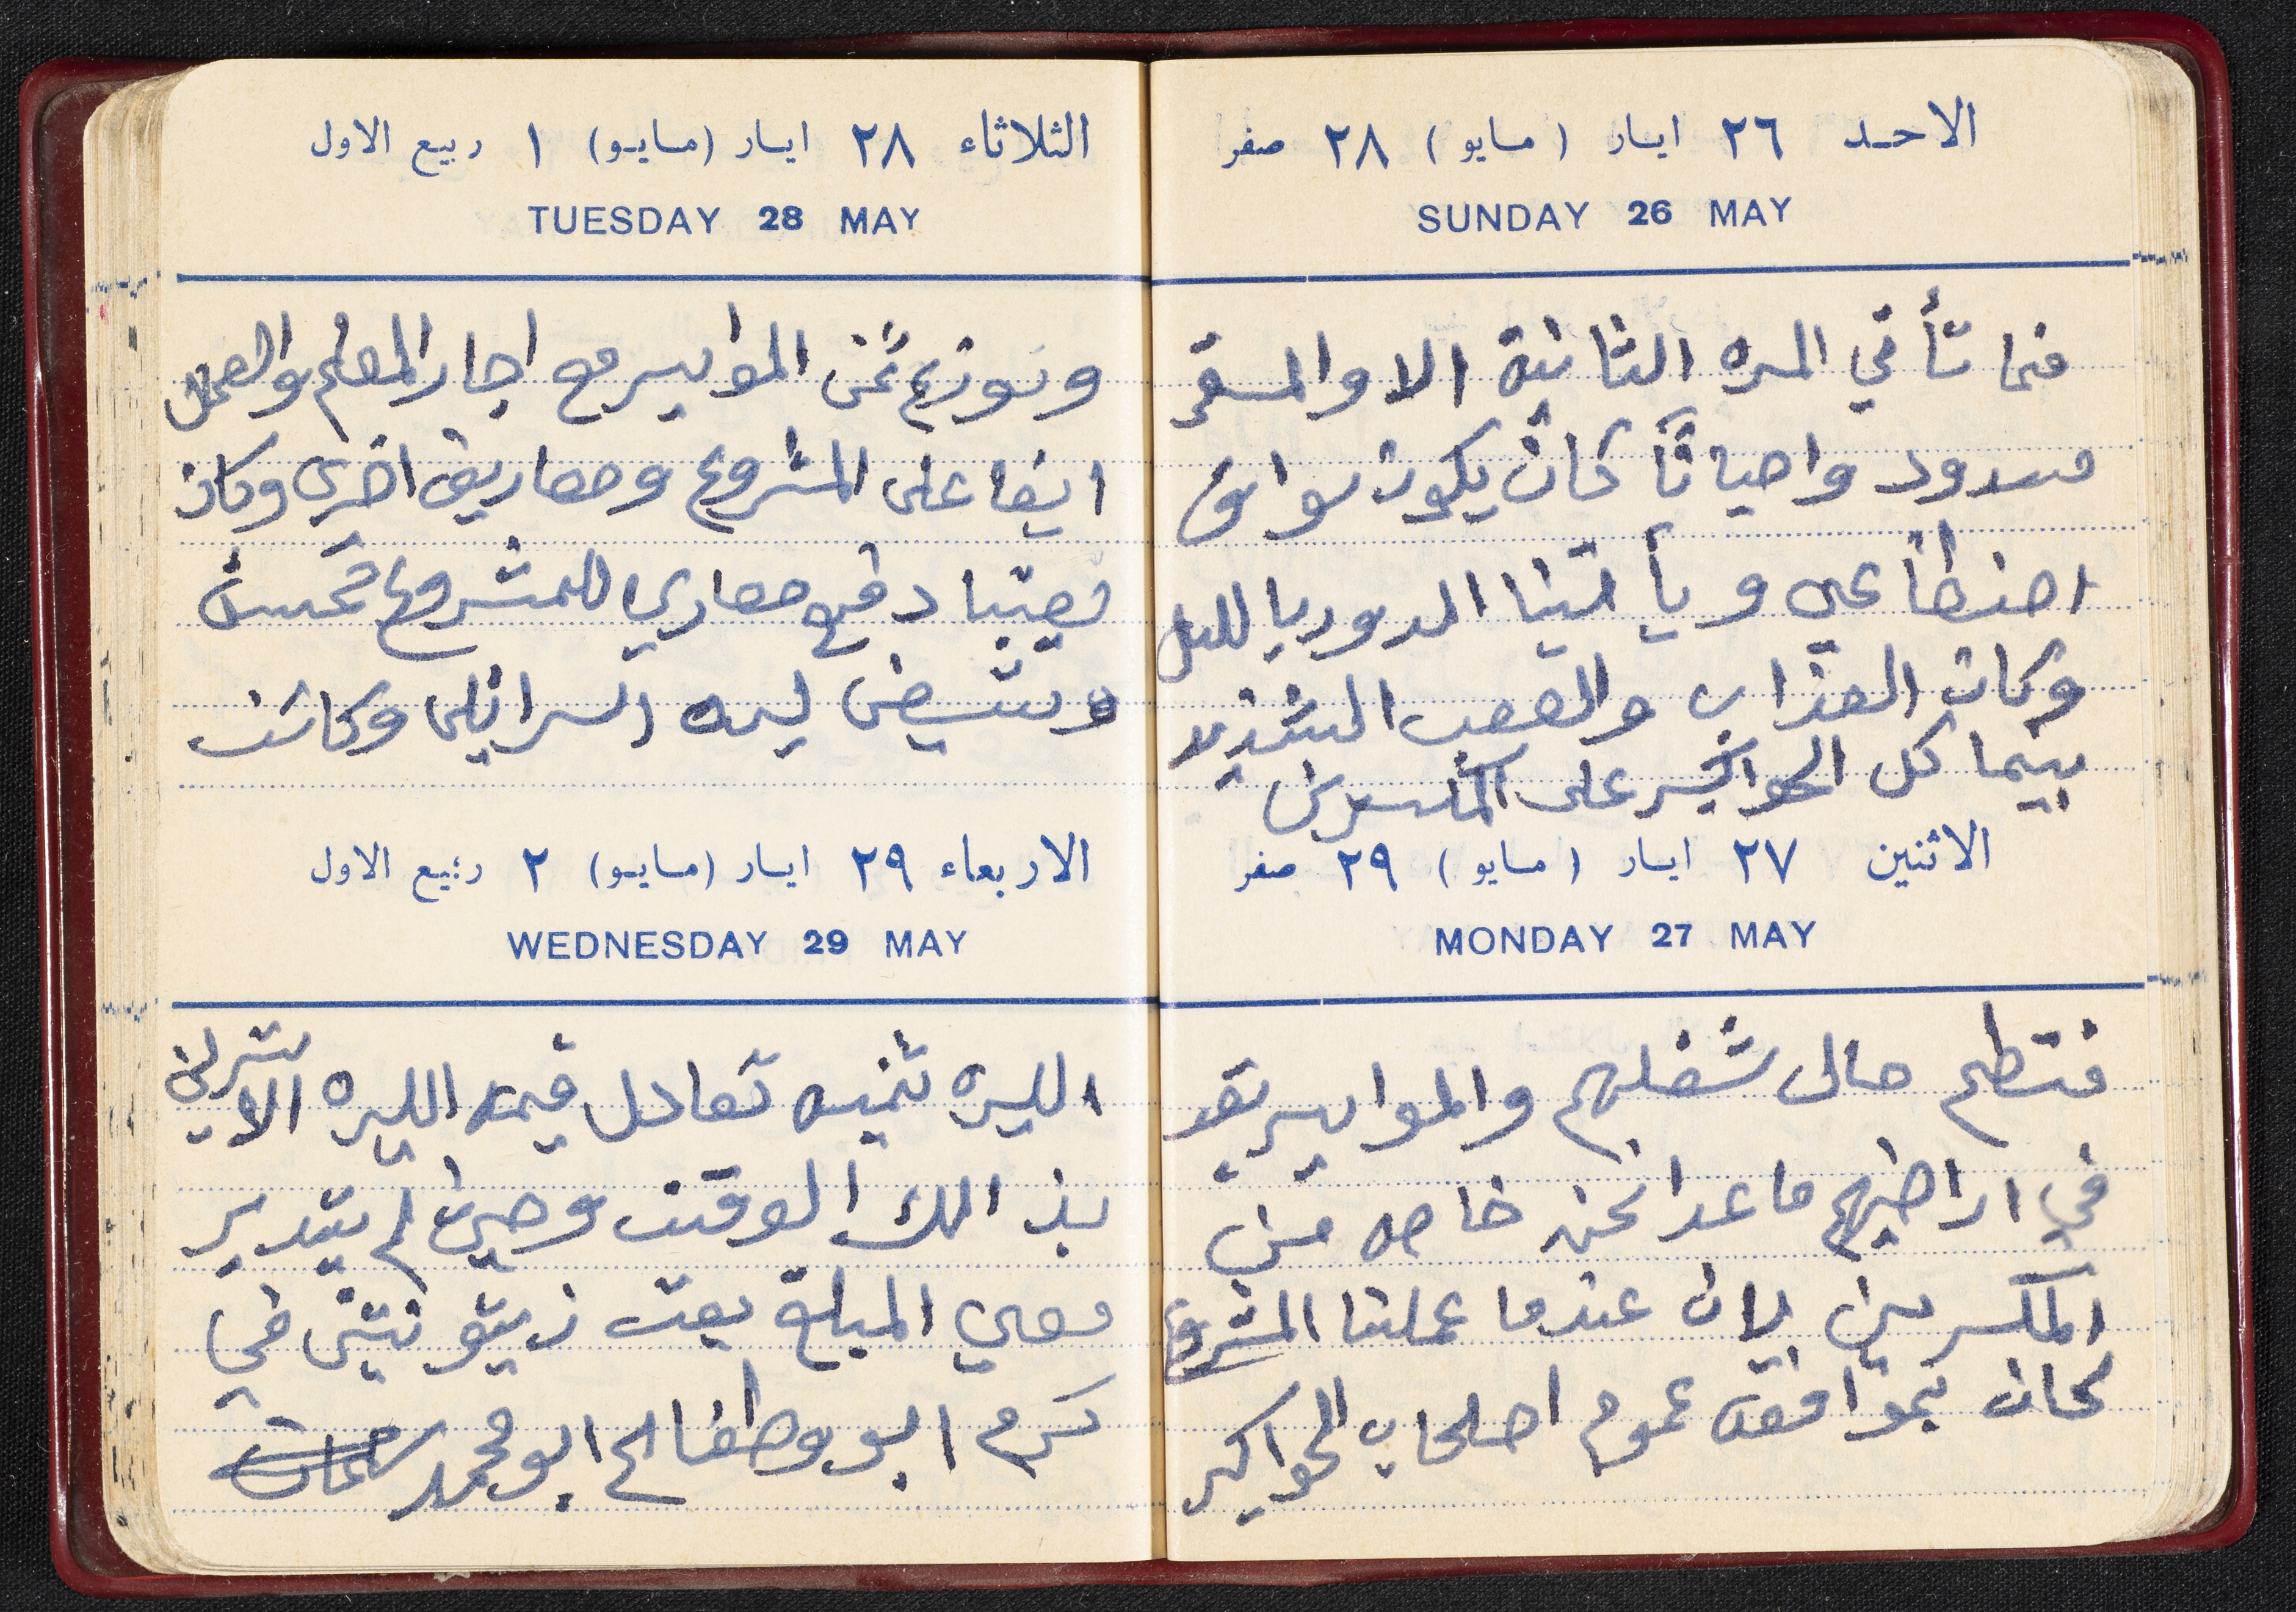 الاحد ٢٦ ايار (مايو) ٢٨ صفر
SUNDAY 26 MAY
فما تأتي المره الثانية الا والمسقر
مسدود واحياناً كان يكون سواق
اصنطاعي ويأتينا الدور بالليل
وكان العذاب والصعب الشديد
بينما كل الحواكير على المكسرين
الاثنين ٢٧ ايار (مايو) ٢٩ صفر
MONDAY 27 MAY
فتطم حال شغلهم والمواسير تقد
في اراضيهم ما عدا نحن خاصه من
المكسرين لان عندما عملنا المشروع
كان بموافقة عموم اصلحاب الحواكير
الثلاثاء ٢٨ ايار (مايو) ١ ربيع الاول
TUESDAY 28 MAY
ونوزع ثمن المواسير مع اجار المعلم والعمال
ايضا على المشروع ومصاريف اخرى وكان
نصيبا دفع مصاري للمشروع خمسة
وتسعين ليره اسرائلي وكانت
الاربعاء ٢٩ ايار (مايو) ٢ ربيع الاول
WEDNESDAY 29 MAY
الليره ثمينه تعادل قيمة الليره الاسترليني
بذالك الوقت وحين لم يتدبر
معي المبلغ بعت زيتونتين في
كرم ابو وطفا لح ابو محمد